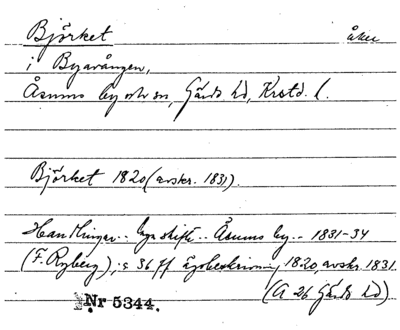 Björket åker
i Byavången,
Åsums by och sn, Gärds hd, Krstd. l.
Björket 1820 (avskr. 1831).
Handlingar .. laga skifte .. Åsums by .. 1831-34
(F. Ryberg), s 36 ff ägobeskrivning 1820, avskr. 1831
(A 26 Gärds hd)
Nr 5344.